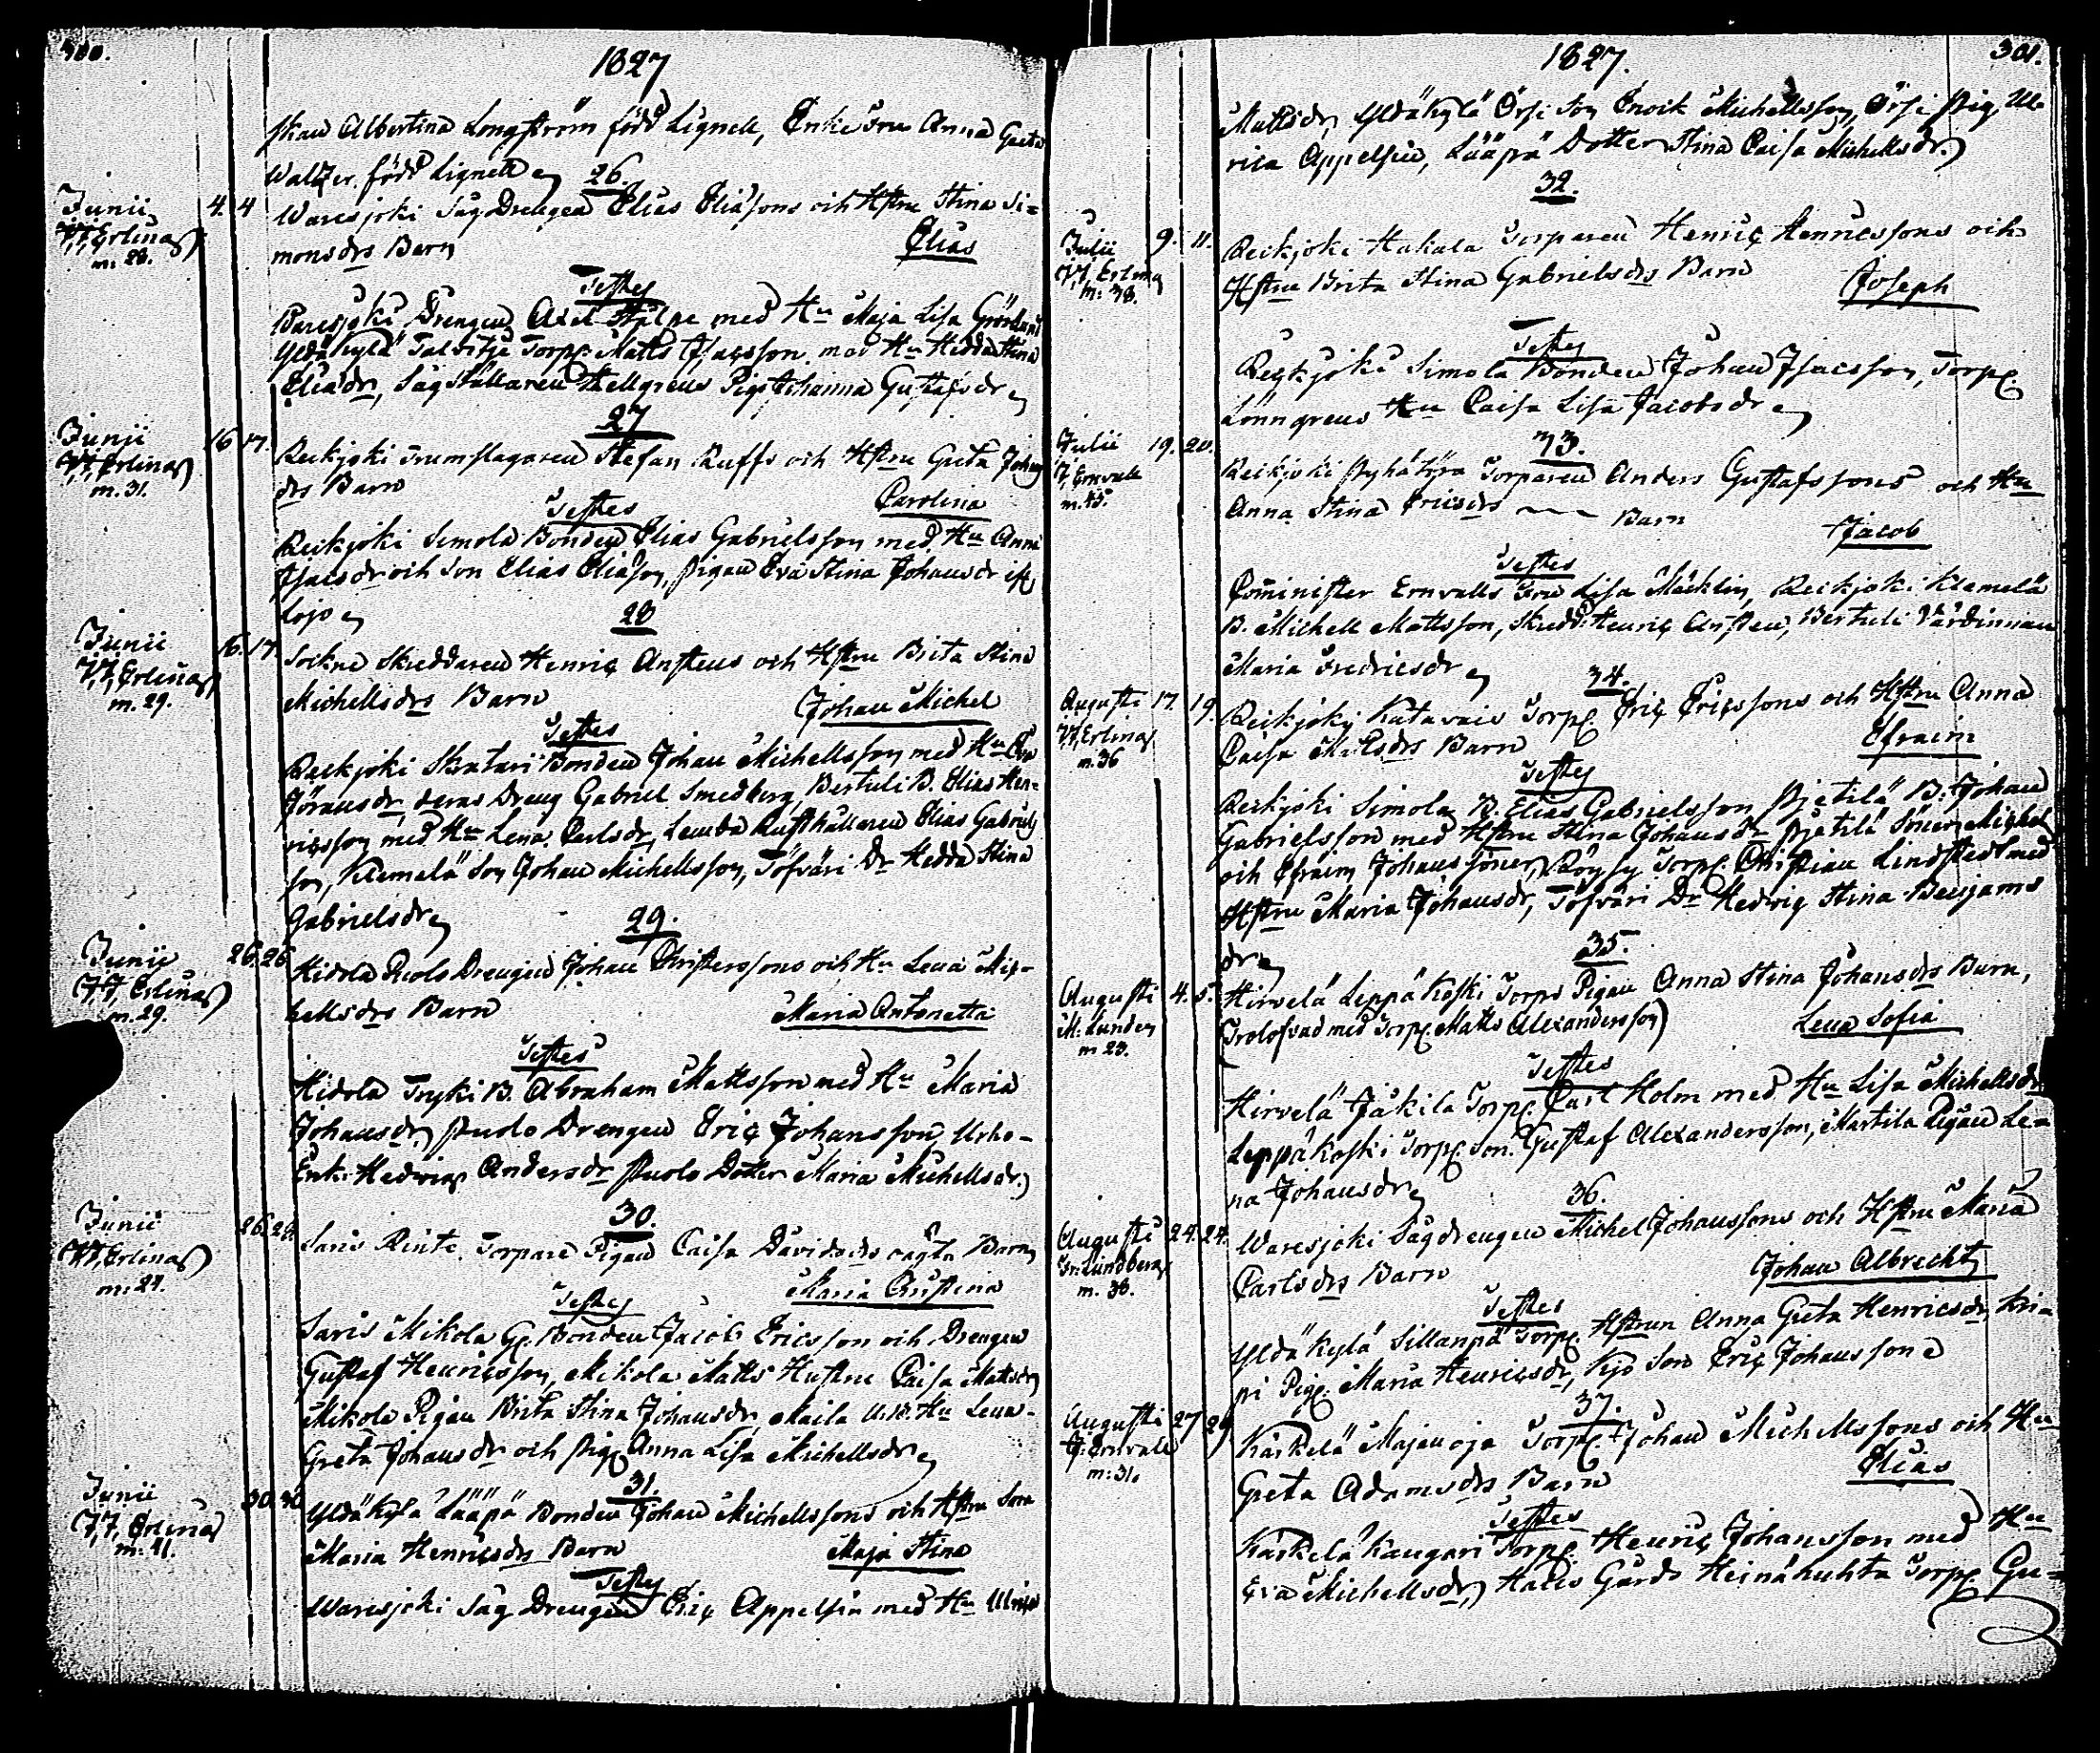 300.
1827
skau Albertina Longström född Lignell, Enke Fru Anna Greta
Waltzer, född Lignell
26.
Junii 4. 4 Waresjoki Såg Drengen Elias Eliæsons och Hstru Stina Si=
J. J. Erlina m: 28.
monsdrs Barn Elias
Testes
Waresjoki Drengen Axel Stålpe med Hu Maja Lisa Grönlund
Yldäkylä Talvitje Torp: Matts Isacsson med Hu Hedda Stina
Eliædr, Sågställaren Hellgrens Piga Johanna Gustafsdr
27
Junii 16 17. Reikjoki Trumslagaren Stefan Ruffs och Hstru Greta Johans
J. J. Erlina m. 31.
drs Barn Carolina
Testes
Reikjoki Simola Bonden Elias Gabrielsson med Hu Anna
Isacsdr och Son Elias Eliæson, Pigan Eva Stina Johansdr ifr
Lojo
28
Junii 16. 17. Sockne Skreddaren Henric Anstens och Hstru Brita Stina
J. J. Erlina m. 29.
Michellsdrs Barn Johan Michel
Testes
Reikjoki Skratari Bonden Johan Michellsson med Hu Eva
Jöransdr, deras Dreng Gabriel Smedberg, Bertuli B. Elias Hen-
ricsson med Hu Lena Carlsdr, Lemda Rusthållaren Elias Gabriels
son, Klemelä Son Johan Michellsson, Töfväri Dr Hedda Stina
Gabrielsdr
29.
Junii 26. 26 Hidola Puolo Drengen Johan Christerssons och Hu Lena Mic-
J. J. Erlina m. 29.
hellsdrs Barn Maria Antonetta
Testes
Hidola Tryki B. Abraham Mattsson med Hu Maria
Johansdr, Puolo Drengen Eric Johansson, Urho-
Enk: Hedwig Andersdr Puolo Dotter Maria Michellsdr.
30.
Junii 26. 28. Saris Rinte Torpare Pigan Caisa Davidsdrs oägta Barn
J. J. Erlina m: 27.
Maria Christina
Testes
Saris Mikola G. Bonden Jacob Ericsson och Drengen
Gustaf Henricsson, Mikola Matts Hustru Caisa Mattsdr
Mikola Pigan Brita Stina Johansdr, Maila Hu Lena-
Greta Johansdr och Pig: Anna Lisa Michellsdr
31.
Junii 30. 30 Yldäkylä Lääpä Bonden Johan Michellssons och Hstru Sara
J. J. Erlina m: 41.
Maria Henricsdrs Barn Maja Stina
Testes
Waresjoki Såg Drengen Eric Appelsin med Hu Ulrica
1827.
301.
Mattsdr, Yldäkylä Örsi Son Enock Michellsson, Örsi Pig. Ul-
rica Appelsin, Lääpä Dotter Stina Caisa Michellsdr.
32.
Julii 9. 11. Reikjoki Hakala Torparen Henric Henricssons och
J. J. Erlina m: 38.
Hstru Brita Stina Gabrielsdrs Barn Joseph
Testes
Reikjoki Simola Bonden Johan Isacsson, Torp:
Lönngrens Hu Caisa Lisa Jacobsdr
33.
Julii 19. 20. Reikjoki Pyhälöra Torparen Anders Gustafssons och Hu
J. Ernvall m. 45.
Anna Stina Ericsdrs Barn Jacob
Testes
Cominister Ernvalls Fru Lisa Mäcklin, Reikjoki Klemelä
B. Michell Mattsson, Skredd: Henric Ansten, Bertuli Värdinnan
Maria Fredricsdr
34.
Augusti 17. 19. Reikjoki Katavais Torp: Eric Ericssons och Hstru Anna
J. J. Erlina m. 36
Caisa Mattsdrs Barn Efraim
Testes
Reikjoki Simola B. Elias Gabrielsson Pietilä B: Johan
Gabrielsson med Hstru Stina Johansdr Pietilä Söner Michel
och Efraim Johanssöner, Röysy Torp: Christian Lindstedt med
Hstru Maria Johansdr, Töfväri Dr Hedwig Stina Benjams
dr
35.
Augusti 4. 5. Hirvelä Leppäkoski Torps Pigan Anna Stina Johansdrs Barn,
M: Lunden m 23.
(Trolofvad med Torp: Matts Alexandersson) Lena Sofia
Testes
Hirvelä Jäkilä Torp: Carl Holm med Hu Lisa Michellsdr
Leppäkoski Torp: Son: Gustaf Alexandersson, Martila Pigan Le-
na Johansdr
36.
Augusti 24. 24. Waresjoki Sågdrengen Michel Johanssons och Hstru Maria
Lundberg m. 36.
Carlsdrs Barn Johan Albrecht
Testes
Yldäkylä Sillanpä Torp: Hstrun Anna Greta Henricsdr, Kri-
pi Pig: Maria Henricsdr, Kyö Son Eric Johansson
37.
Augusti 27 29 Kärkelä Majanoja Torp: Johan Michellssons och Hu
J. Ernvall m: 31.
Greta Adamsdrs Barn Elias
Testes
Kärkelä Kaugari Torp: Henric Johansson med Hu
Eva Michellsdr, Gårds Heinähuhta Torp: Gu-